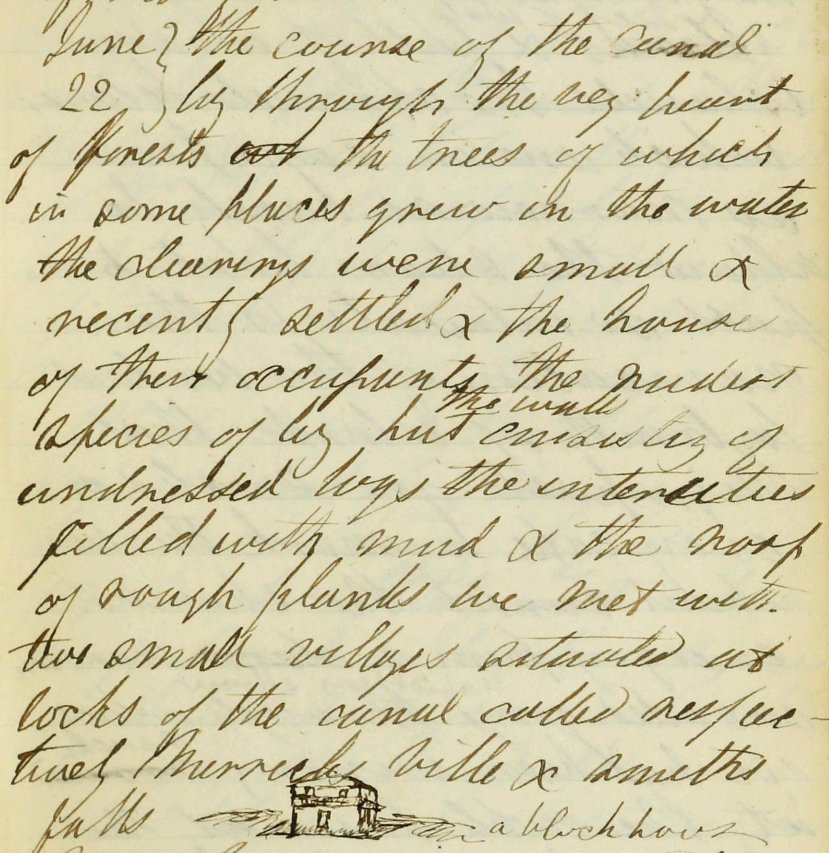 June } the course of the canal
22 } lay through the very heart
of forests the trees of which
in some places grew in the water
the clearings were small &
recently settled & the house
of their occupants the rudest
the walls
species of log hut consisting of
undressed logs the interstities
filled with mud & the roof
of rough planks we met with
two small villages situated at
locks of the canal called respec-
tively Merrick ville & smiths
falls a block house